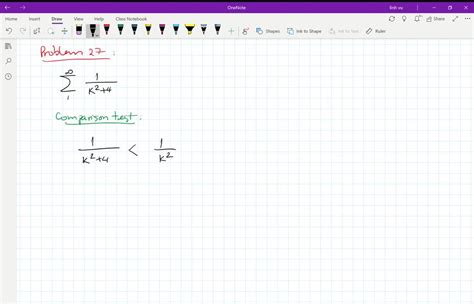 OneNote
linh vu
File Home Insert Draw View Help Class Notebook
Ink to Shape Ink to Text Ruler
Problem 27 :
∞
∑ 1/(k²+4)
1
Comparison test :
1/(k²+4) < 1/k²